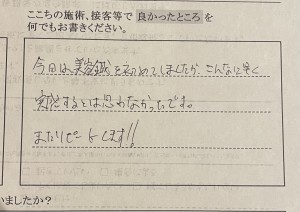 ここちの施術、接客等で 良かったところ を
何でもお書きください。
今日は、美容鍼を初めてしましたが、こんなに早く
実感するとは思わなかったです。
またリピートします!!
いましたか?